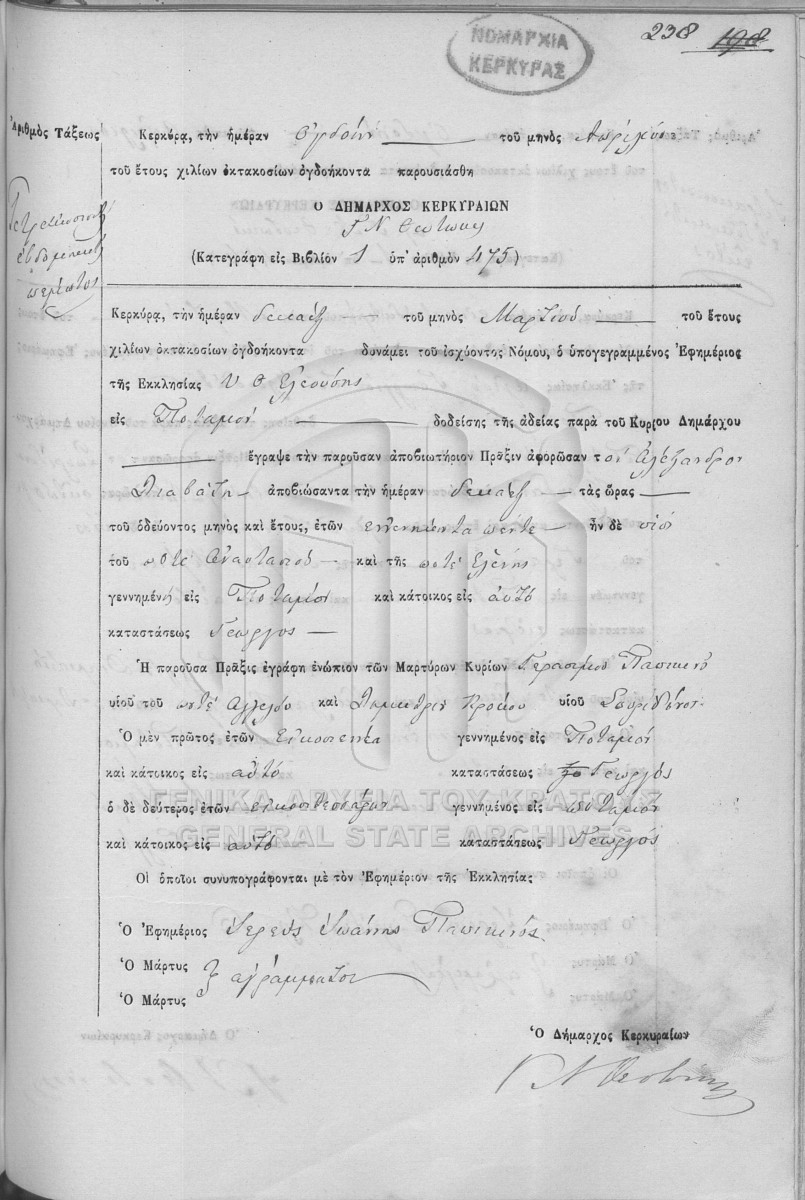 238 198
ΝΟΜΑΡΧΙΑ
ΚΕΡΚΥΡΑΣ
Ἀριθμὸς Τάξεως
Τετρακόσια
ἑβδομήκοντα
πέμπτος
Κερκύρᾳ, τὴν ἡμέραν ὀγδόην τοῦ μηνὸς Ἀπριλίου
τοῦ ἔτους χιλίων ὀκτακοσίων ὀγδοήκοντα παρουσιάσθη
Ὁ ΔΗΜΑΡΧΟΣ ΚΕΡΚΥΡΑΙΩΝ
Γ Ν Θεοτόκης
(Κατεγράφη εἰς Βιβλίον 1 ὑπ' ἀριθμὸν 475)
Κερκύρᾳ, τὴν ἡμέραν δεκαέξ τοῦ μηνὸς Μαρτίου τοῦ ἔτους
χιλίων ὀκτακοσίων ὀγδοήκοντα δυνάμει τοῦ ἰσχύοντος Νόμου, ὁ ὑπογεγραμμένος Ἐφημέριος
τῆς Ἐκκλησίας Υ Θ Ἐλεούσης
εἰς Ποταμὸν δοθείσης τῆς ἀδείας παρὰ τοῦ Κυρίου Δημάρχου
ἔγραψε τὴν παροῦσαν ἀποβιωτήριον Πρᾶξιν ἀφορῶσαν τὸν Ἀλέξανδρον
Λιαβάτη ἀποβιώσαντα τὴν ἡμέραν δεκαέξ τὰς ὥρας
τοῦ ὁδεύοντος μηνὸς καὶ ἔτους, ἐτῶν ἐννενήκοντα πέντε ἦν δὲ υἱὸν
τοῦ ποτὲ Ἀναστασίου καὶ τῆς ποτὲ Ἑλένης
γεννημένος εἰς Ποταμὸν καὶ κάτοικος εἰς αὐτό
καταστάσεως Γεωργός
Ἡ παροῦσα Πρᾶξις ἐγράφη ἐνώπιον τῶν Μαρτύρων Κυρίων Γεράσιμου Παπικινοῦ
υἱοῦ τοῦ ποτὲ Ἀγγέλου καὶ Δημητρίου Κρόκου υἱοῦ Σπυρίδωνος
Ὁ μὲν πρῶτος ἐτῶν εἰκοσιεννέα γεννημένος εἰς Ποταμὸν
καὶ κάτοικος εἰς αὐτό καταστάσεως Γεωργός
ὁ δὲ δεύτερος ἐτῶν εἰκοσιτεσσάρων γεννημένος εἰς Ποταμὸν
καὶ κάτοικος εἰς αὐτό καταστάσεως Γεωργός
Οἱ ὁποῖοι συνυπογράφονται μὲ τὸν Ἐφημέριον τῆς Ἐκκλησίας
Ὁ Ἐφημέριος Ἱερεὺς Ἰωάννης Παπικινός
Ὁ Μάρτυς ἀγράμματοι
Ὁ Μάρτυς
Ὁ Δήμαρχος Κερκυραίων
Γ Ν Θεοτόκης
ΓΕΝΙΚΑ ΑΡΧΕΙΑ ΤΟΥ ΚΡΑΤΟΥΣ
GENERAL STATE ARCHIVES